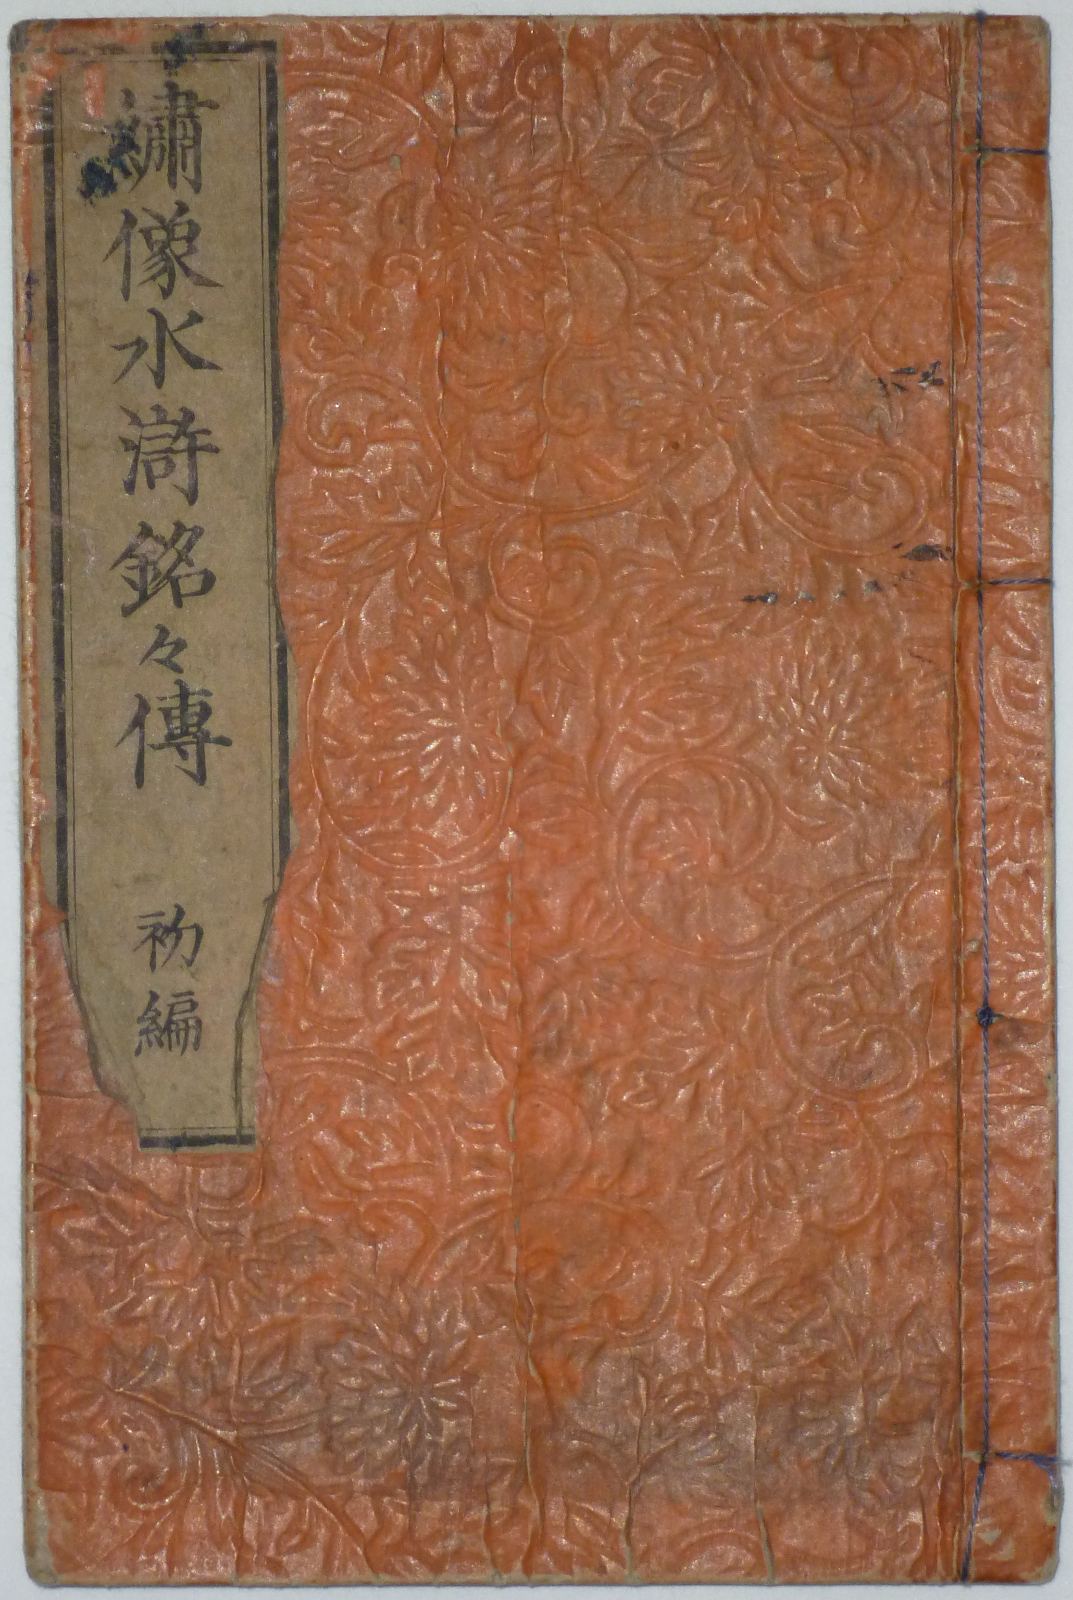 繍像水滸銘々傳
初編